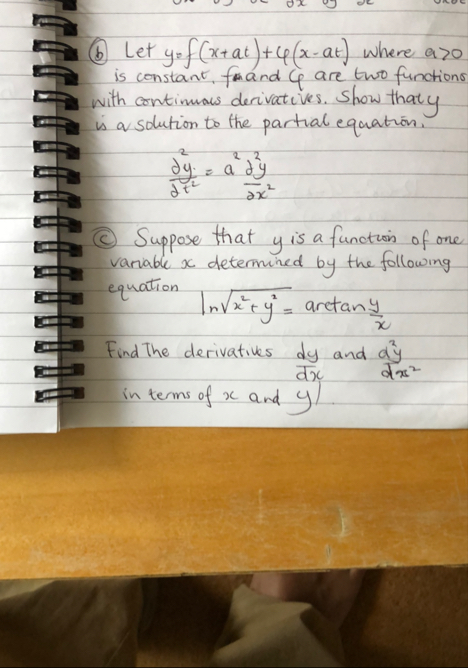 ⓑ Let y=f(x+at)+φ(x-at) where a>0
is constant, f and φ are two functions
with continuous derivatives. Show that y
is a solution to the partial equation.
∂²y/∂t² = a² ∂²y/∂x²
ⓒ Suppose that y is a function of one
variable x determined by the following
equation
ln√x²+y² = arctan y/x
Find The derivatives dy/dx and d²y/dx²
in terms of x and y!